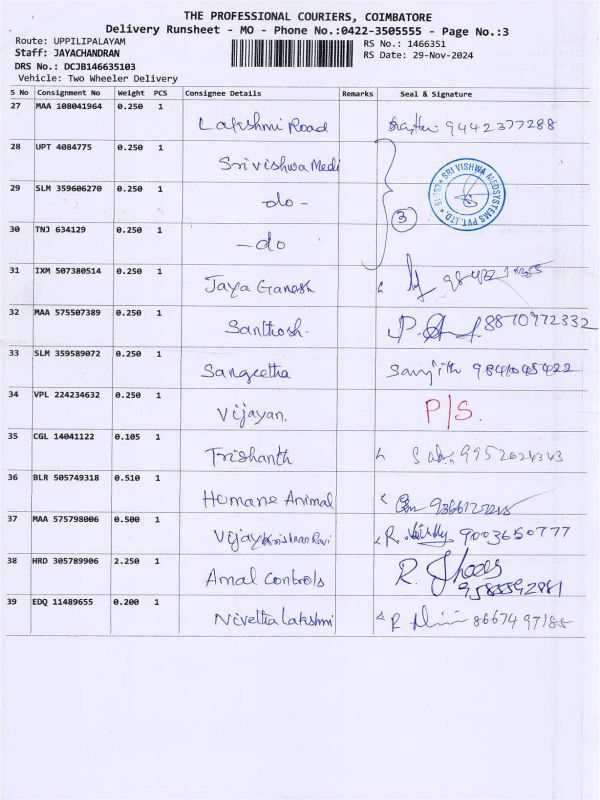 THE PROFESSIONAL COURIERS, COIMBATORE
Delivery Runsheet - MO - Phone No.:0422-3505555 - Page No.:3
Route: UPPILIPALAYAM
RS No.: 1466351
Staff: JAYACHANDRAN
RS Date: 29-Nov-2024
DRS No.: DCJB146635103
Vehicle: Two Wheeler Delivery
S No Consignment No Weight PCS Consignee Details Remarks Seal & Signature
27 MAA 108041964 0.250 1
Lakshmi Road 9442377288
28 UPT 4084775 0.250 1
Sri vishwa Medi
SRI VISHWA MEDSYSTEMS PVT. LTD.
29 SLM 359606270 0.250 1
-do-
3
30 TNJ 634129 0.250 1
-do
31 IXM 507380514 0.250 1
Jaya Ganesh
32 MAA 575507389 0.250 1
Santhosh. 8870972332
33 SLM 359589072 0.250 1
Sangeetha
34 VPL 224234632 0.250 1
Vijayan. P/S.
35 CGL 14041122 0.105 1
Trishanth
36 BLR 505749318 0.510 1
Humane Animal
37 MAA 575798006 0.500 1
R. 9003650777
38 HRD 305789906 2.250 1
Amal Controls R.
39 EDQ 11489655 0.200 1
Lakshmi R